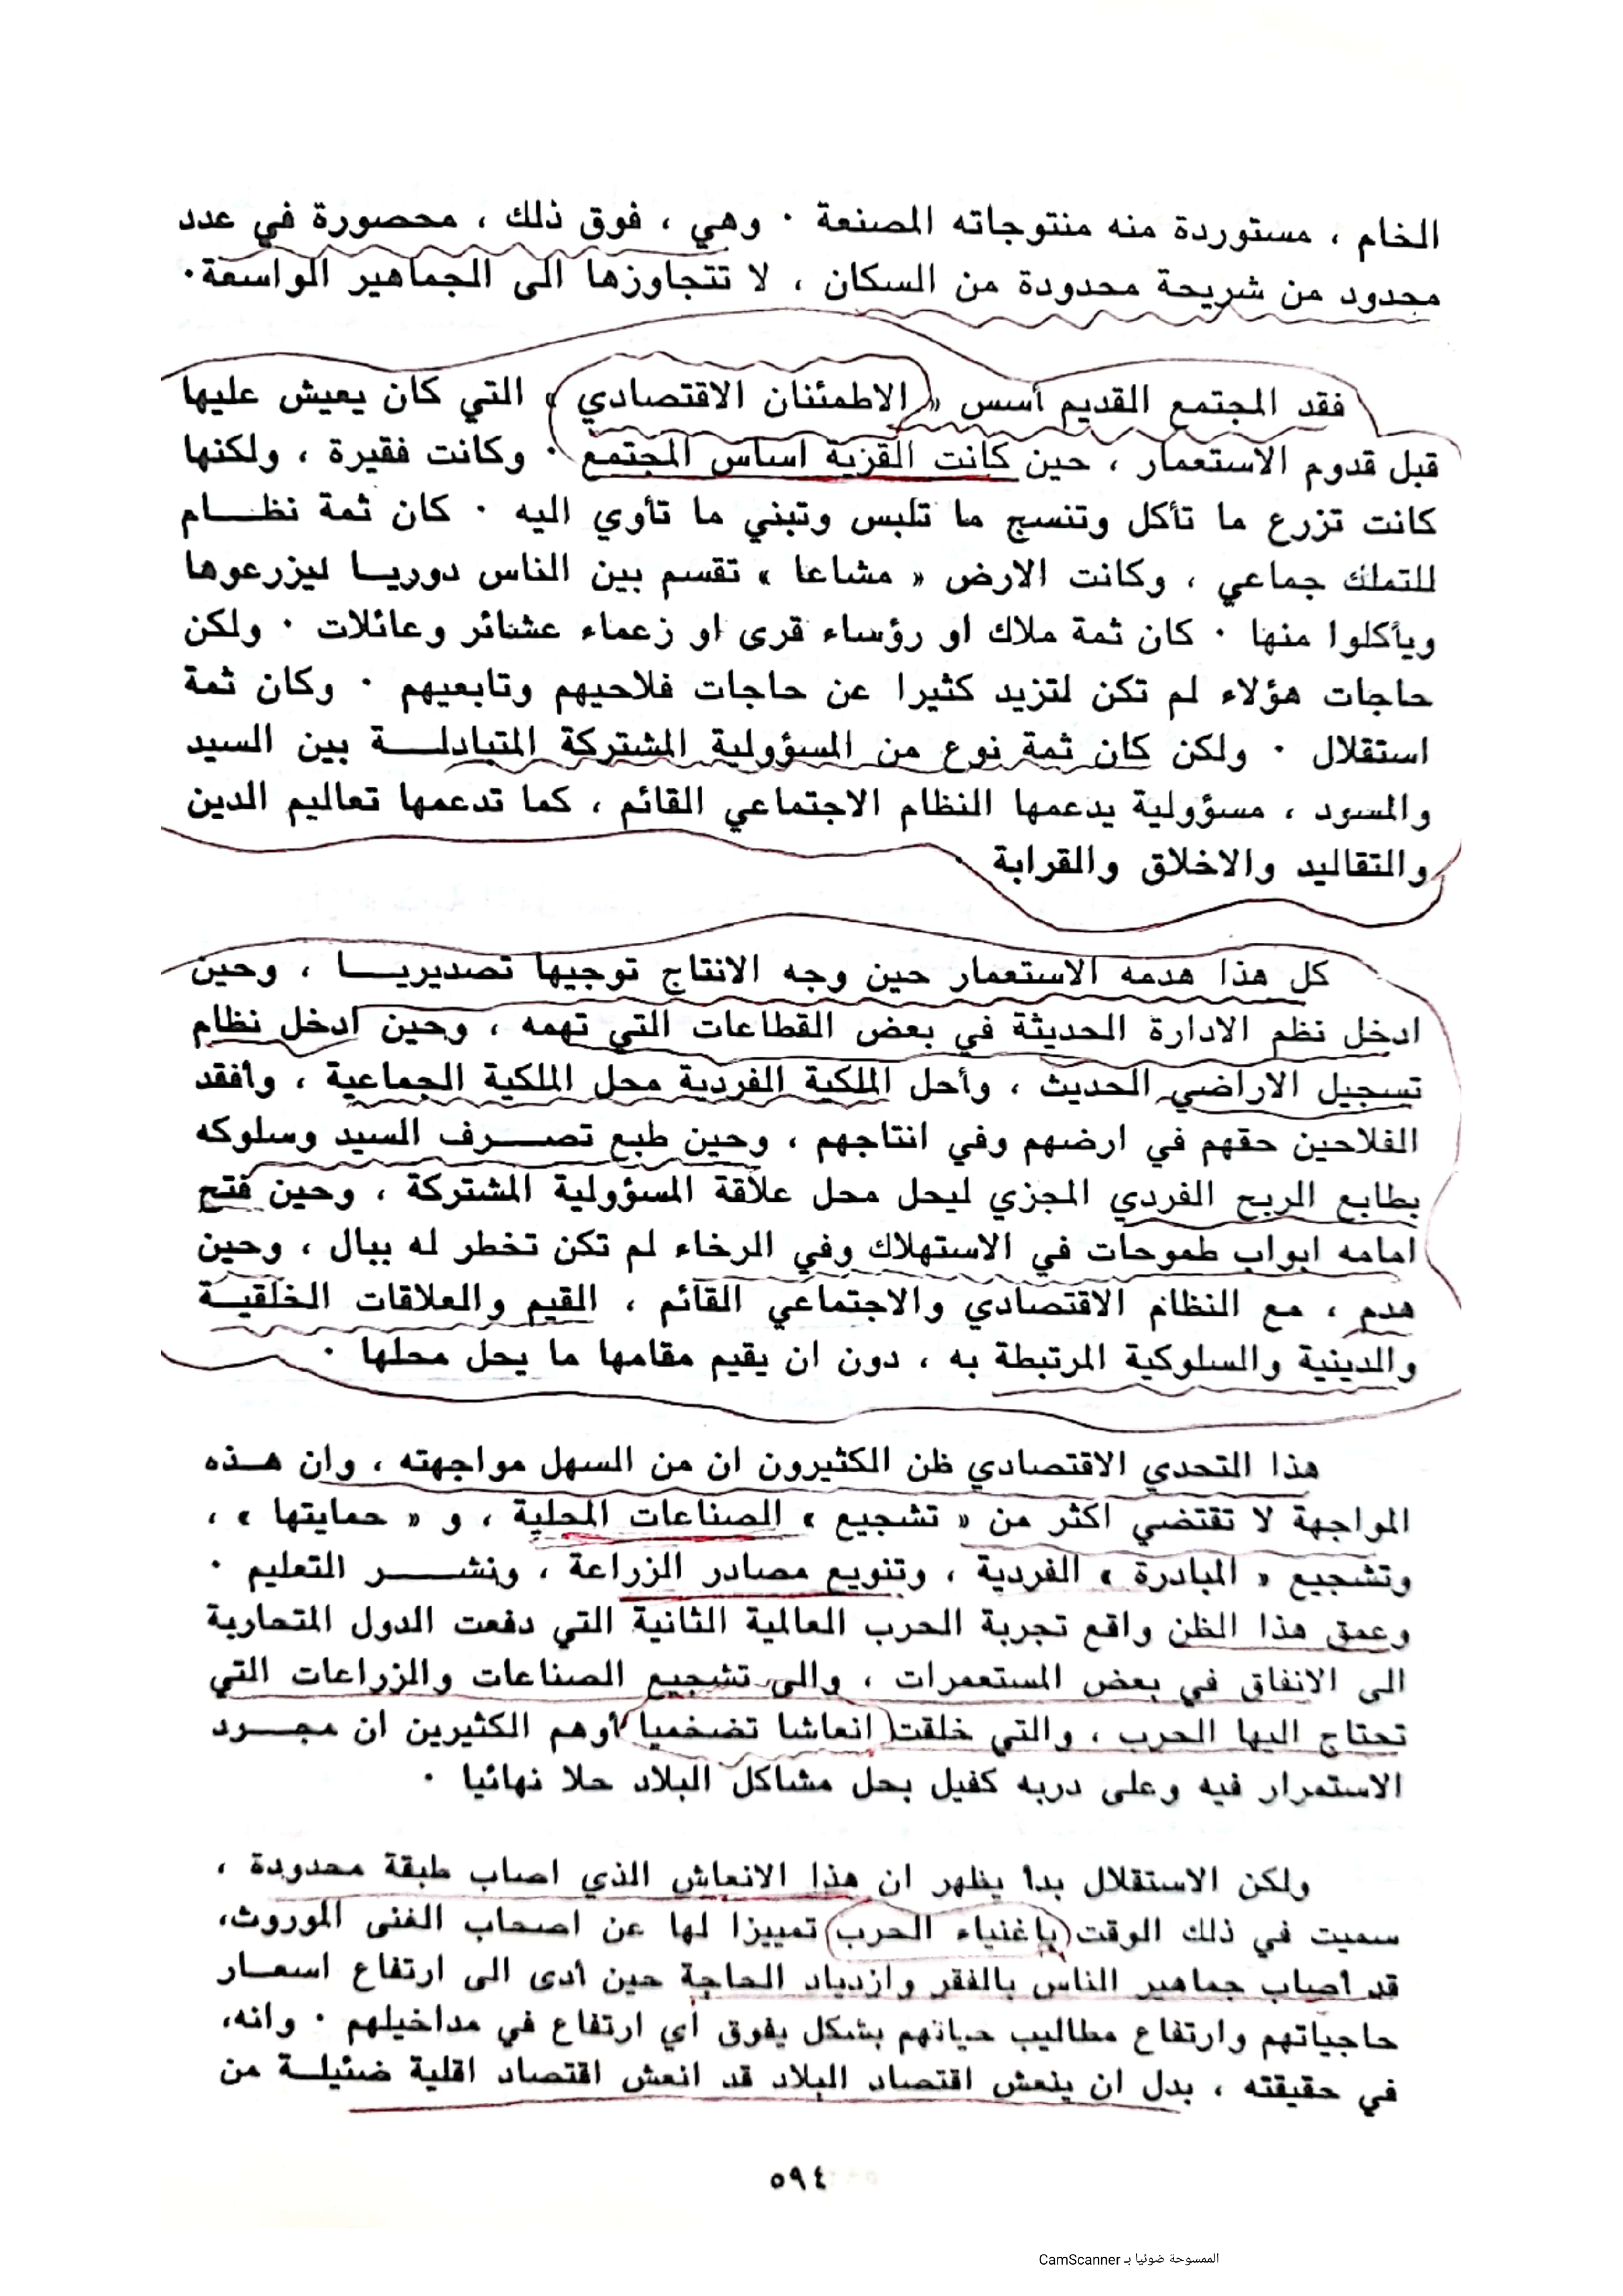 الخام ، مستوردة منه منتوجاته المصنعة . وهي ، فوق ذلك ، محصورة في عدد
محدود من شريحة محدودة من السكان ، لا تتجاوزها الى الجماهير الواسعة .
فقد المجتمع القديم أسس « الاطمئنان الاقتصادي » التي كان يعيش عليها
قبل قدوم الاستعمار ، حين كانت القرية اساس المجتمع . وكانت فقيرة ، ولكنها
كانت تزرع ما تأكل وتنسج ما تلبس وتبني ما تأوي اليه . كان ثمة نظــام
للتملك جماعي ، وكانت الارض « مشاعا » تقسم بين الناس دوريــا ليزرعوها
ويأكلوا منها . كان ثمة ملاك او رؤساء قرى او زعماء عشائر وعائلات . ولكن
حاجات هؤلاء لم تكن لتزيد كثيرا عن حاجات فلاحيهم وتابعيهم . وكان ثمة
استقلال . ولكن كان ثمة نوع من المسؤولية المشتركة المتبادلــة بين السيد
والمسود ، مسؤولية يدعمها النظام الاجتماعي القائم ، كما تدعمها تعاليم الدين
والتقاليد والاخلاق والقرابة
كل هذا هدمه الاستعمار حين وجه الانتاج توجيها تصديريــا ، وحين
ادخل نظم الادارة الحديثة في بعض القطاعات التي تهمه ، وحين ادخل نظام
تسجيل الاراضي الحديث ، وأحل الملكية الفردية محل الملكية الجماعية ، وأفقد
الفلاحين حقهم في ارضهم وفي انتاجهم ، وحين طبع تصــرف السيد وسلوكه
بطابع الربح الفردي المجزي ليحل محل علاقة المسؤولية المشتركة ، وحين فتح
امامه ابواب طموحات في الاستهلاك وفي الرخاء لم تكن تخطر له ببال ، وحين
هدم ، مع النظام الاقتصادي والاجتماعي القائم ، القيم والعلاقات الخلقيــة
والدينية والسلوكية المرتبطة به ، دون ان يقيم مقامها ما يحل محلها .
هذا التحدي الاقتصادي ظن الكثيرون ان من السهل مواجهته ، وان هــذه
المواجهة لا تقتضي اكثر من « تشجيع » الصناعات المحلية ، و « حمايتها » ،
وتشجيع « المبادرة » الفردية ، وتنويع مصادر الزراعة ، ونشــر التعليم .
وعمق هذا الظن واقع تجربة الحرب العالمية الثانية التي دفعت الدول المتحاربة
الى الانفاق في بعض المستعمرات ، والى تشجيع الصناعات والزراعات التي
تحتاج اليها الحرب ، والتي خلقت انعاشا تضخميا أوهم الكثيرين ان مجــرد
الاستمرار فيه وعلى دربه كفيل بحل مشاكل البلاد حلا نهائيا .
ولكن الاستقلال بدا يظهر ان هذا الانعاش الذي اصاب طبقة محدودة ،
سميت في ذلك الوقت باغنياء الحرب تمييزا لها عن اصحاب الغنى الموروث،
قد أصاب جماهير الناس بالفقر وازدياد الحاجة حين أدى الى ارتفاع اسعــار
حاجياتهم وارتفاع مطاليب حياتهم بشكل يفوق أي ارتفاع في مداخيلهم . وانه،
في حقيقته ، بدل ان ينعش اقتصاد البلاد قد انعش اقتصاد اقلية ضئيلــة من
٥٩٤
الممسوحة ضوئيا بـ CamScanner